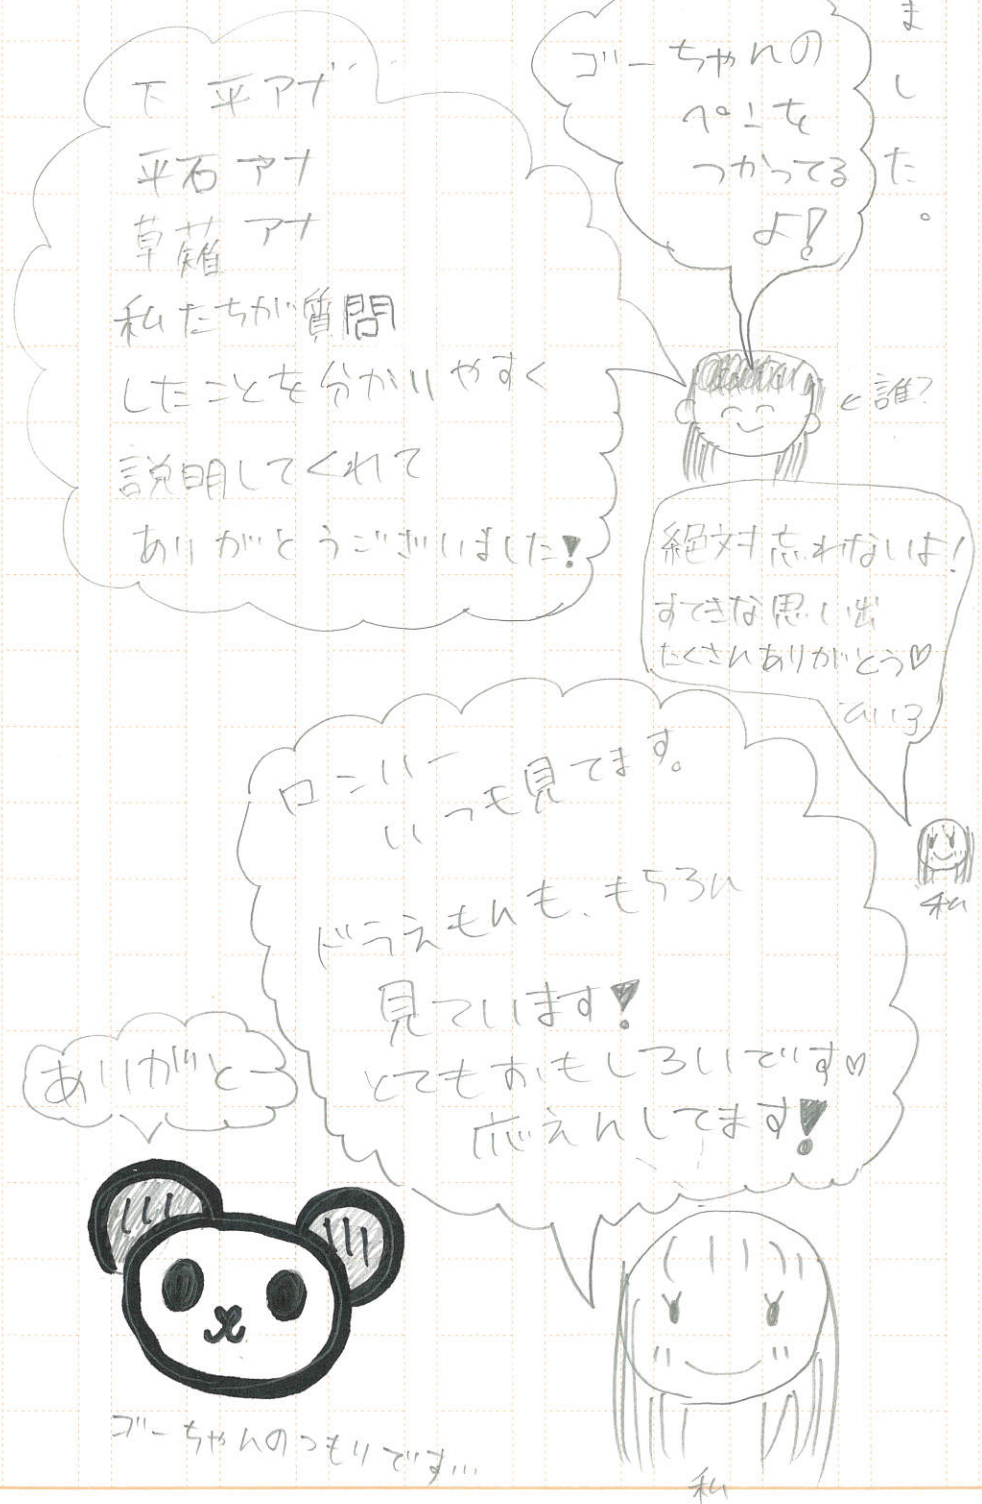 ました。
ゴーちゃんの
ペンを
つかってる
よ!
下平アナ
平石アナ
草薙アナ
私たちが質問
したことを分かりやすく
説明してくれて
ありがとうございました!
←誰?
絶対忘れないよ!
すてきな思い出
たくさんありがとう♡
私
ロンハー
いつも見てます。
ドラえもんも、もちろん
見ています!
とてもおもしろいです♡
応えんしてます!
ありがとー
ゴーちゃんのつもりです…
私